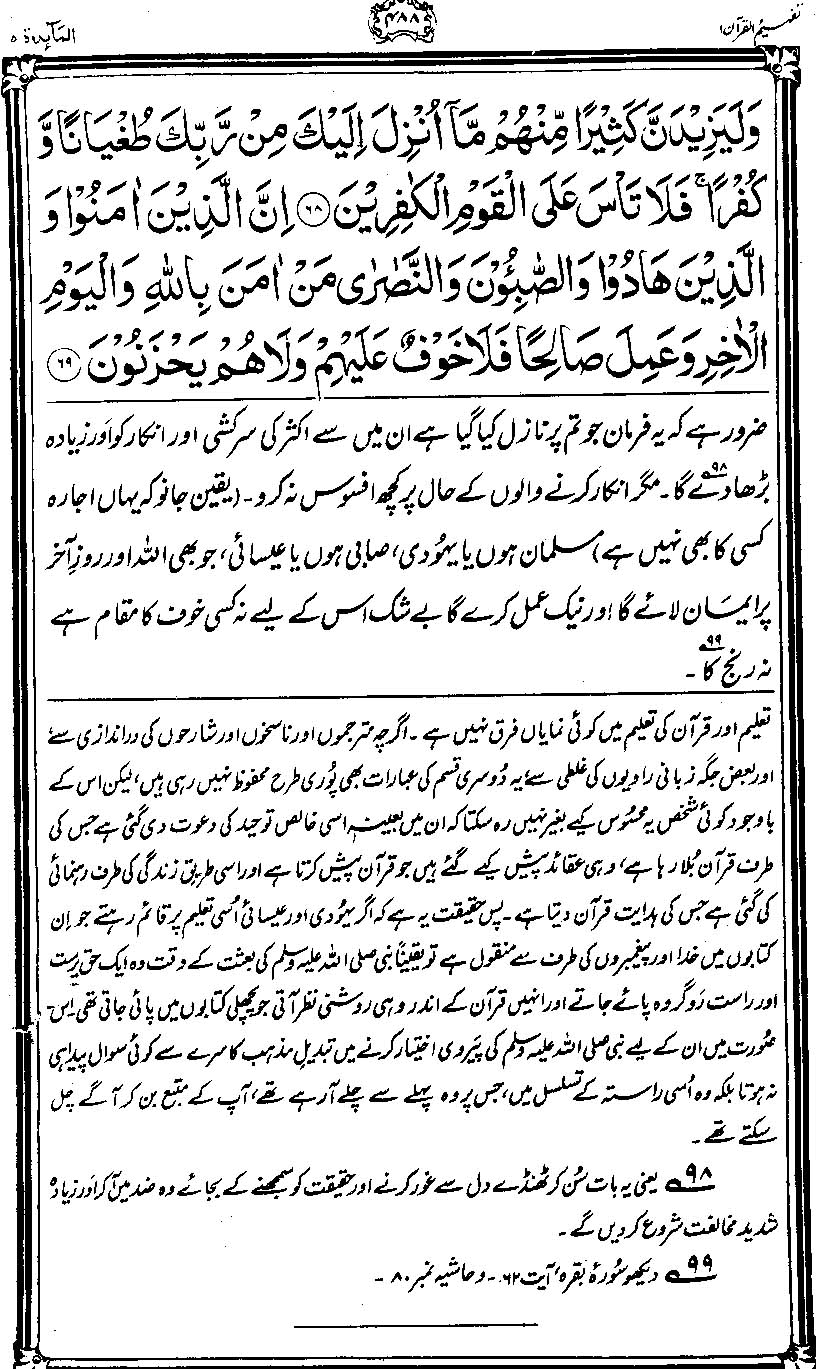 تفہیم القرآن ۱
۴۸۸
المآئدۃ ۵
وَلَيَزِيْدَنَّ كَثِيْرًا مِّنْهُمْ مَّآ اُنْزِلَ اِلَيْكَ مِنْ رَّبِّكَ طُغْيَانًا وَّ
كُفْرًا ۚ فَلَا تَاْسَ عَلَى الْقَوْمِ الْكٰفِرِيْنَ ﴿۶۸﴾ اِنَّ الَّذِيْنَ اٰمَنُوْا وَ
الَّذِيْنَ هَادُوْا وَالصّٰبِئُوْنَ وَالنَّصٰرٰى مَنْ اٰمَنَ بِاللّٰهِ وَالْيَوْمِ
الْاٰخِرِ وَعَمِلَ صَالِحًا فَلَا خَوْفٌ عَلَيْهِمْ وَلَا هُمْ يَحْزَنُوْنَ ﴿۶۹﴾
ضرور ہے کہ یہ فرمان جو تم پر نازل کیا گیا ہے ان میں سے اکثر کی سرکشی اور انکار کو اَور زیادہ
بڑھا دے گا۔۹۸ مگر انکار کرنے والوں کے حال پر کچھ افسوس نہ کرو۔ (یقین جانو کہ یہاں اجارہ
کسی کا بھی نہیں ہے) مسلمان ہوں یا یہودی، صابی ہوں یا عیسائی، جو بھی اللہ اور روزِ آخر
پر ایمان لائے گا اور نیک عمل کرے گا بے شک اس کے لیے نہ کسی خوف کا مقام ہے
نہ رنج کا۔۹۹
تعلیم اور قرآن کی تعلیم میں کوئی نمایاں فرق نہیں ہے۔ اگرچہ مترجموں اور ناسخوں اور شارحوں کی دراندازی سے
اور بعض جگہ زبانی راویوں کی غلطی سے، یہ دُوسری قسم کی عبارات بھی پُوری طرح محفوظ نہیں رہی ہیں، لیکن اس کے
باوجود کوئی شخص یہ محسُوس کیے بغیر نہیں رہ سکتا کہ ان میں بعینہٖ اسی خالص توحید کی دعوت دی گئی ہے جس کی
طرف قرآن بُلا رہا ہے، وہی عقائد پیش کیے گئے ہیں جو قرآن پیش کرتا ہے اور اسی طریقِ زندگی کی طرف رہنمائی
کی گئی ہے جس کی ہدایت قرآن دیتا ہے۔ پس حقیقت یہ ہے کہ اگر یہُودی اور عیسائی اُسی تعلیم پر قائم رہتے جو اِن
کتابوں میں خدا اور پیغمبروں کی طرف سے منقول ہے تو یقیناً نبی صلی اللہ علیہ وسلم کی بعثت کے وقت وہ ایک حق پرست
اور راست رَو گروہ پائے جاتے اور انہیں قرآن کے اندر وہی روشنی نظر آتی جو پچھلی کتابوں میں پائی جاتی تھی۔ اس
صُورت میں ان کے لیے نبی صلی اللہ علیہ وسلم کی پَیروی اختیار کرنے میں تبدیلِ مذہب کا سرے سے کوئی سوال پیدا ہی
نہ ہوتا بلکہ وہ اُسی راستہ کے تسلسل میں، جس پر وہ پہلے سے چلے آ رہے تھے، آپ کے متبع بن کر آگے چل
سکتے تھے۔
۹۸ یعنی یہ بات سُن کر ٹھنڈے دل سے غور کرنے اور حقیقت کو سمجھنے کے بجائے وہ ضد میں آ کر اَور زیادہ
شدید مخالفت شروع کر دیں گے۔
۹۹ دیکھو سُورۂ بقرہ، آیت ۶۲۔ و حاشیہ نمبر ۸۰۔